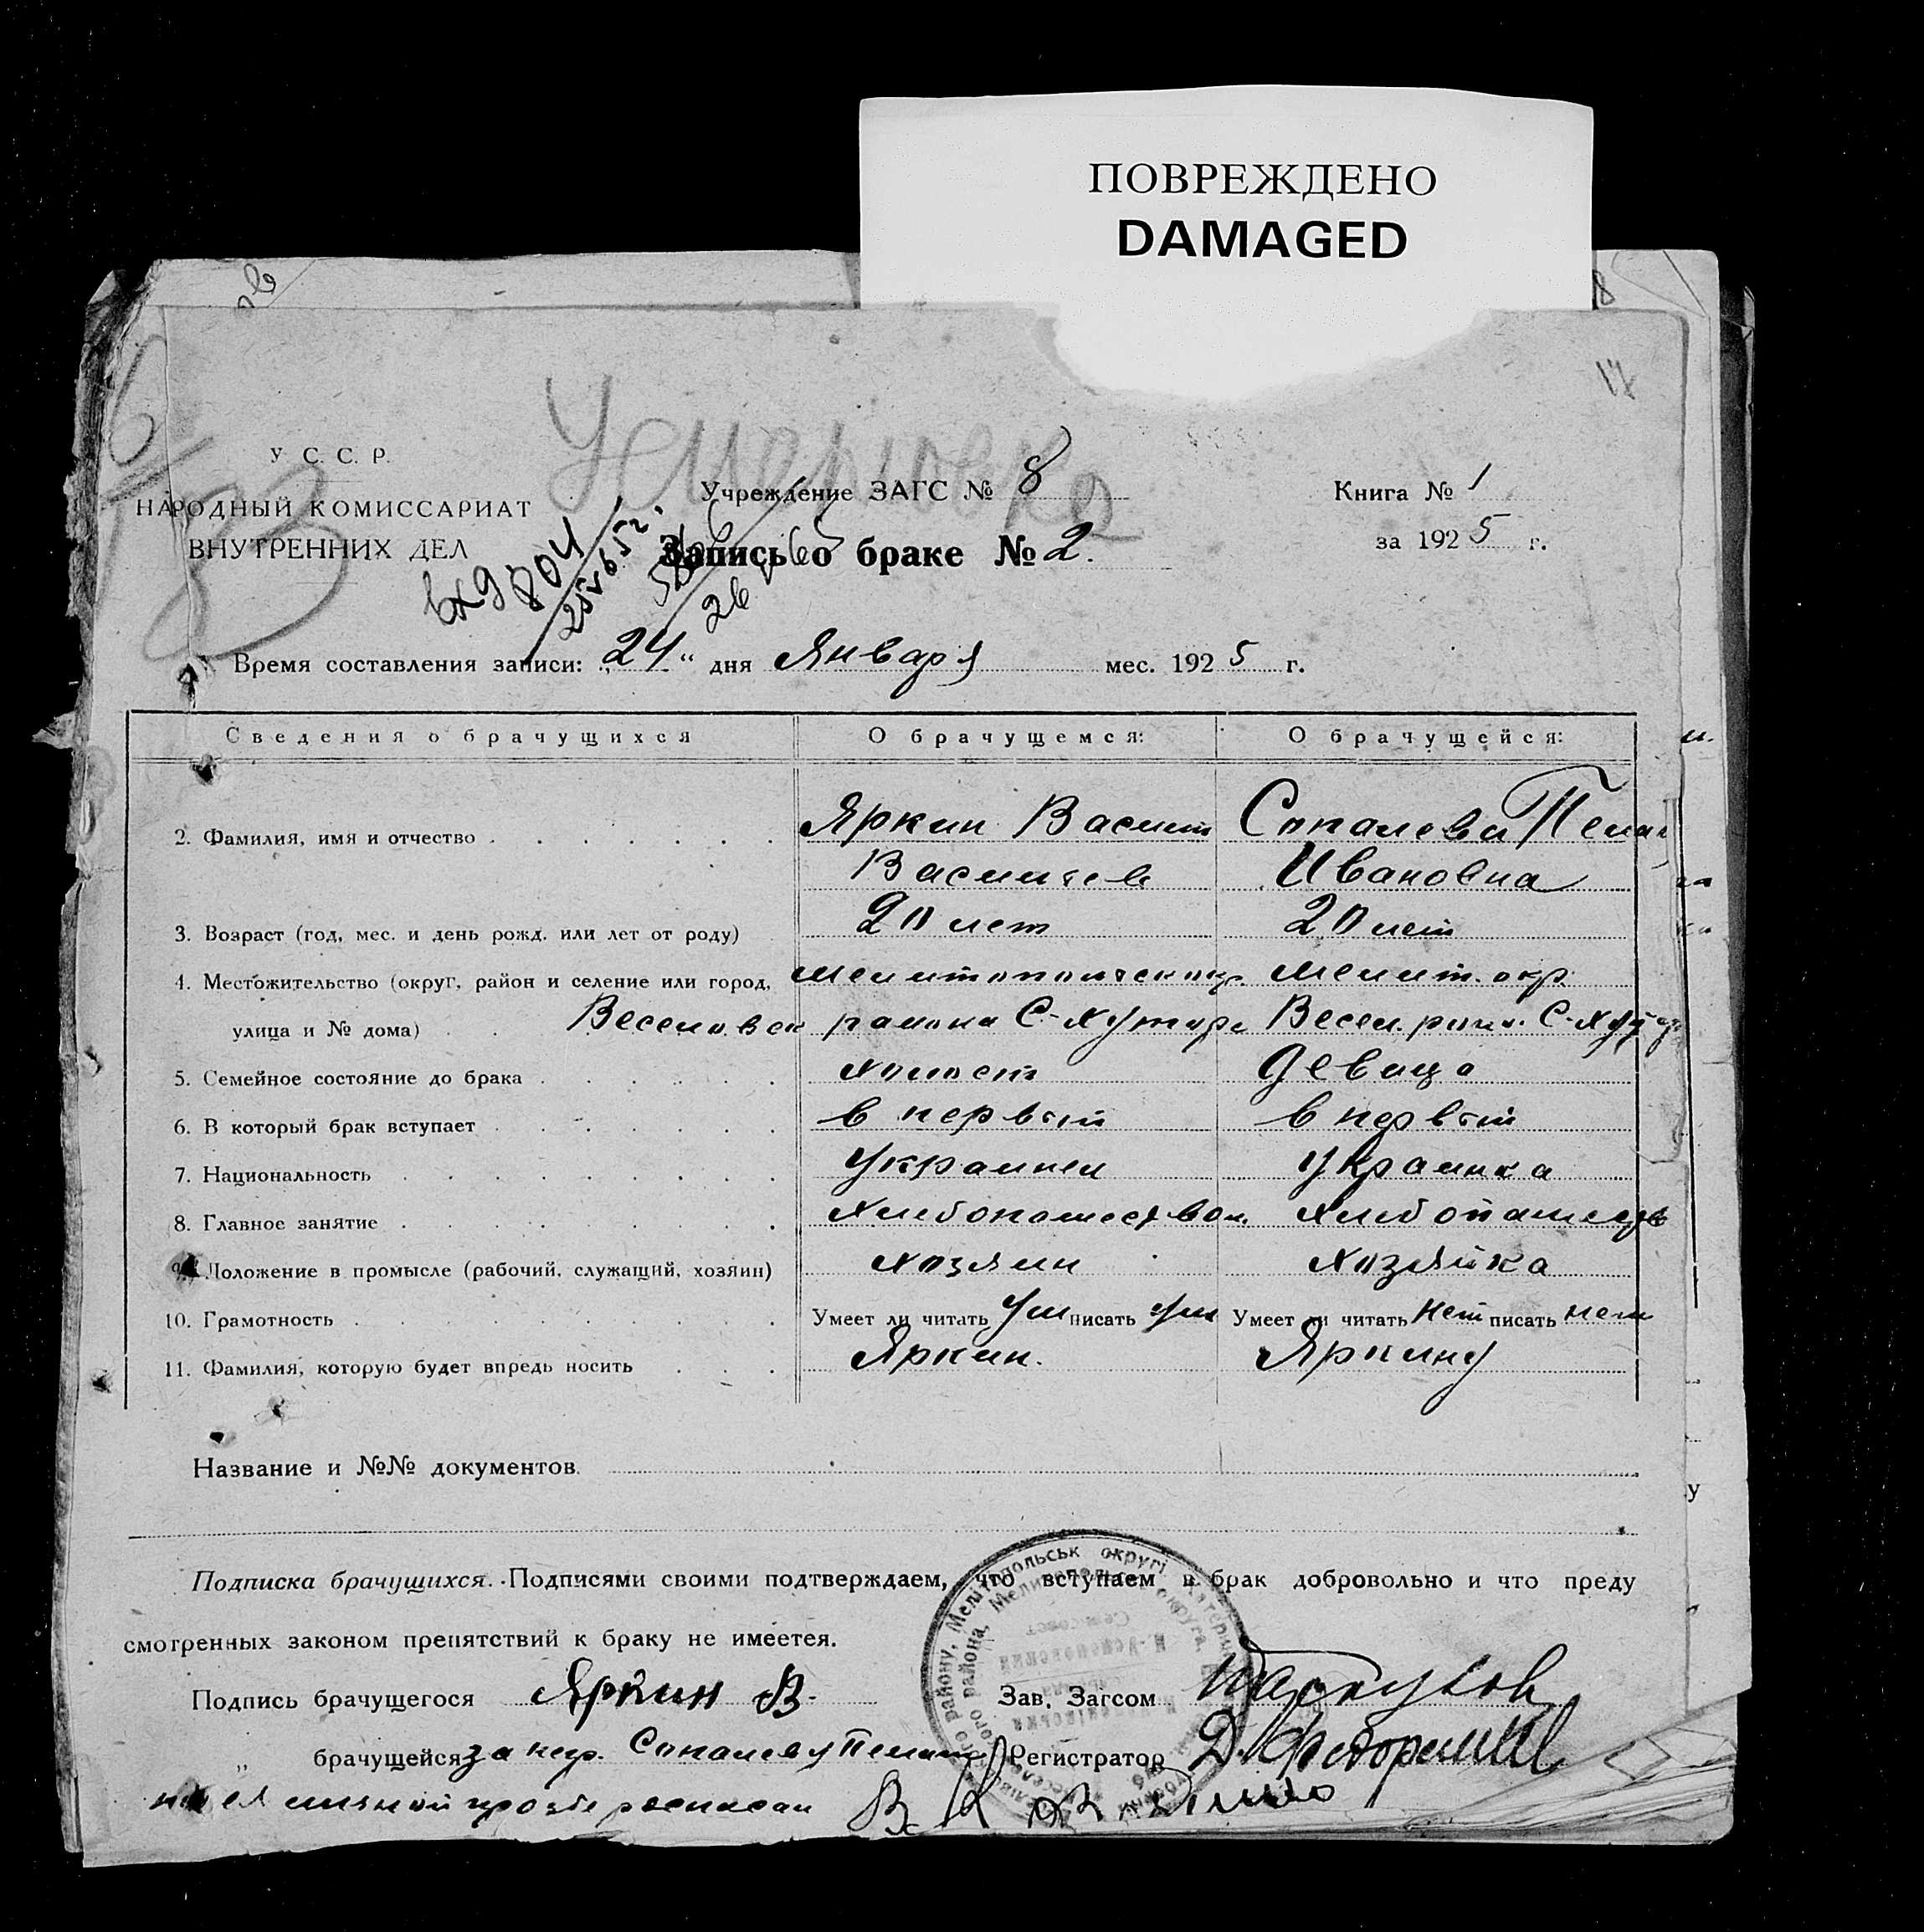 ПОВРЕЖДЕНО
DAMAGED
17
У. С. С. Р.
НАРОДНЫЙ КОМИССАРИАТ
ВНУТРЕННИХ ДЕЛ
Учреждение ЗАГС № 8
Книга № 1
за 1925 г.
Запись о браке № 2.
вх 9804
Время составления записи: „24“ дня Января мес. 1925 г.
Сведения о брачущихся О брачущемся: О брачущейся:
2. Фамилия, имя и отчество Яркин Василий Сопалева Пелаг
Васильев Ивановна
3. Возраст (год, мес. и день рожд. или лет от роду) 20 лет 20 лет
4. Местожительство (округ, район и селение или город, Мелитопольск окр. Мелит. окр.
улица и № дома) Веселовск района С-Хутора Весел. район. С-Хут
5. Семейное состояние до брака холост девица
6. В который брак вступает в первый в первый
7. Национальность Украинец Украинка
8. Главное занятие Хлебопашеством Хлебопашеств
9. Положение в промысле (рабочий, служащий, хозяин) хозяин хозяйка
10. Грамотность Умеет ли читать ум писать ум Умеет ли читать нет писать нет
11. Фамилия, которую будет впредь носить Яркин. Яркину
Название и №№ документов
Подписка брачущихся. Подписями своими подтверждаем, что вступаем в брак добровольно и что преду
смотренных законом препятствий к браку не имеетея.
Подпись брачущегося Яркин В. Зав. Загсом
„ брачущейся за негр. Сопалеву Пелаг Регистратор Д. Федоренко
по ея личной прозбе росписал